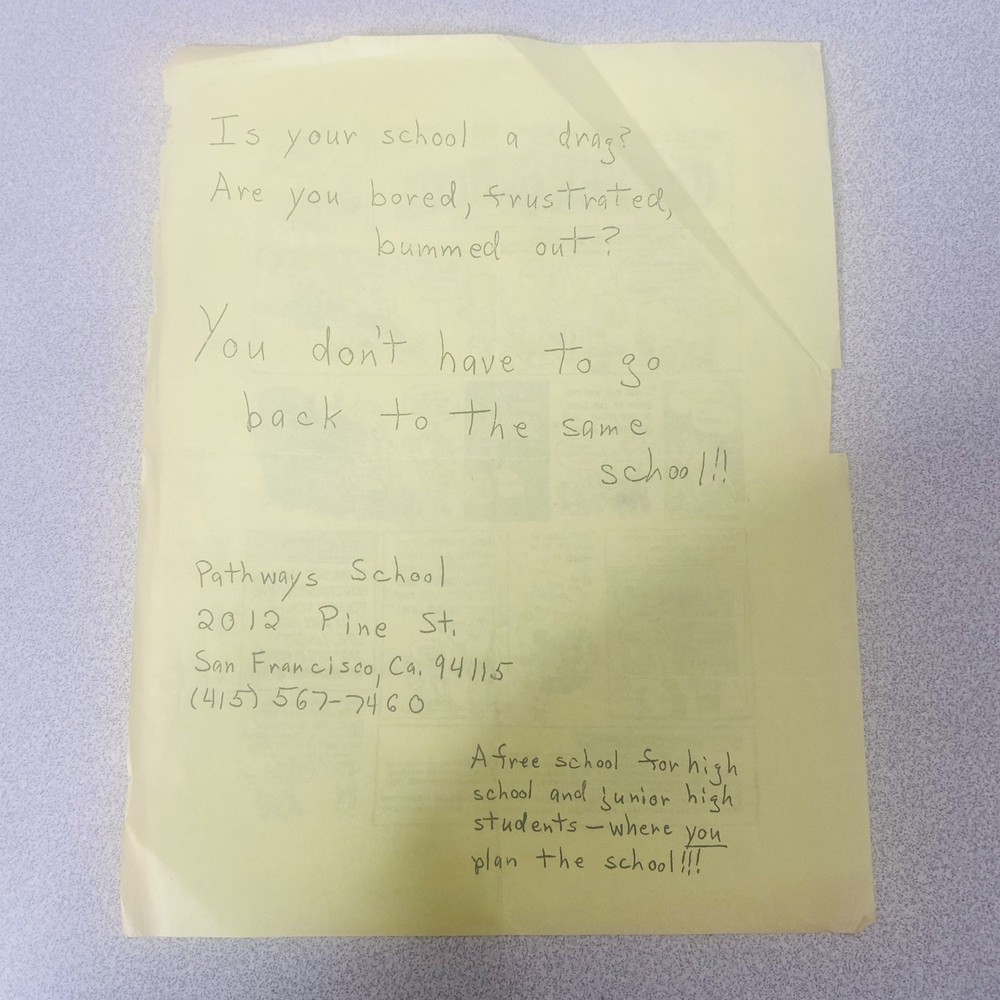 Is your school a drag?
Are you bored, frustrated,
bummed out?
You don't have to go
back to the same
school!!
Pathways School
2012 Pine St.
San Francisco, Ca. 94115
(415) 567-7460
A free school for high
school and junior high
students — where you
plan the school!!!